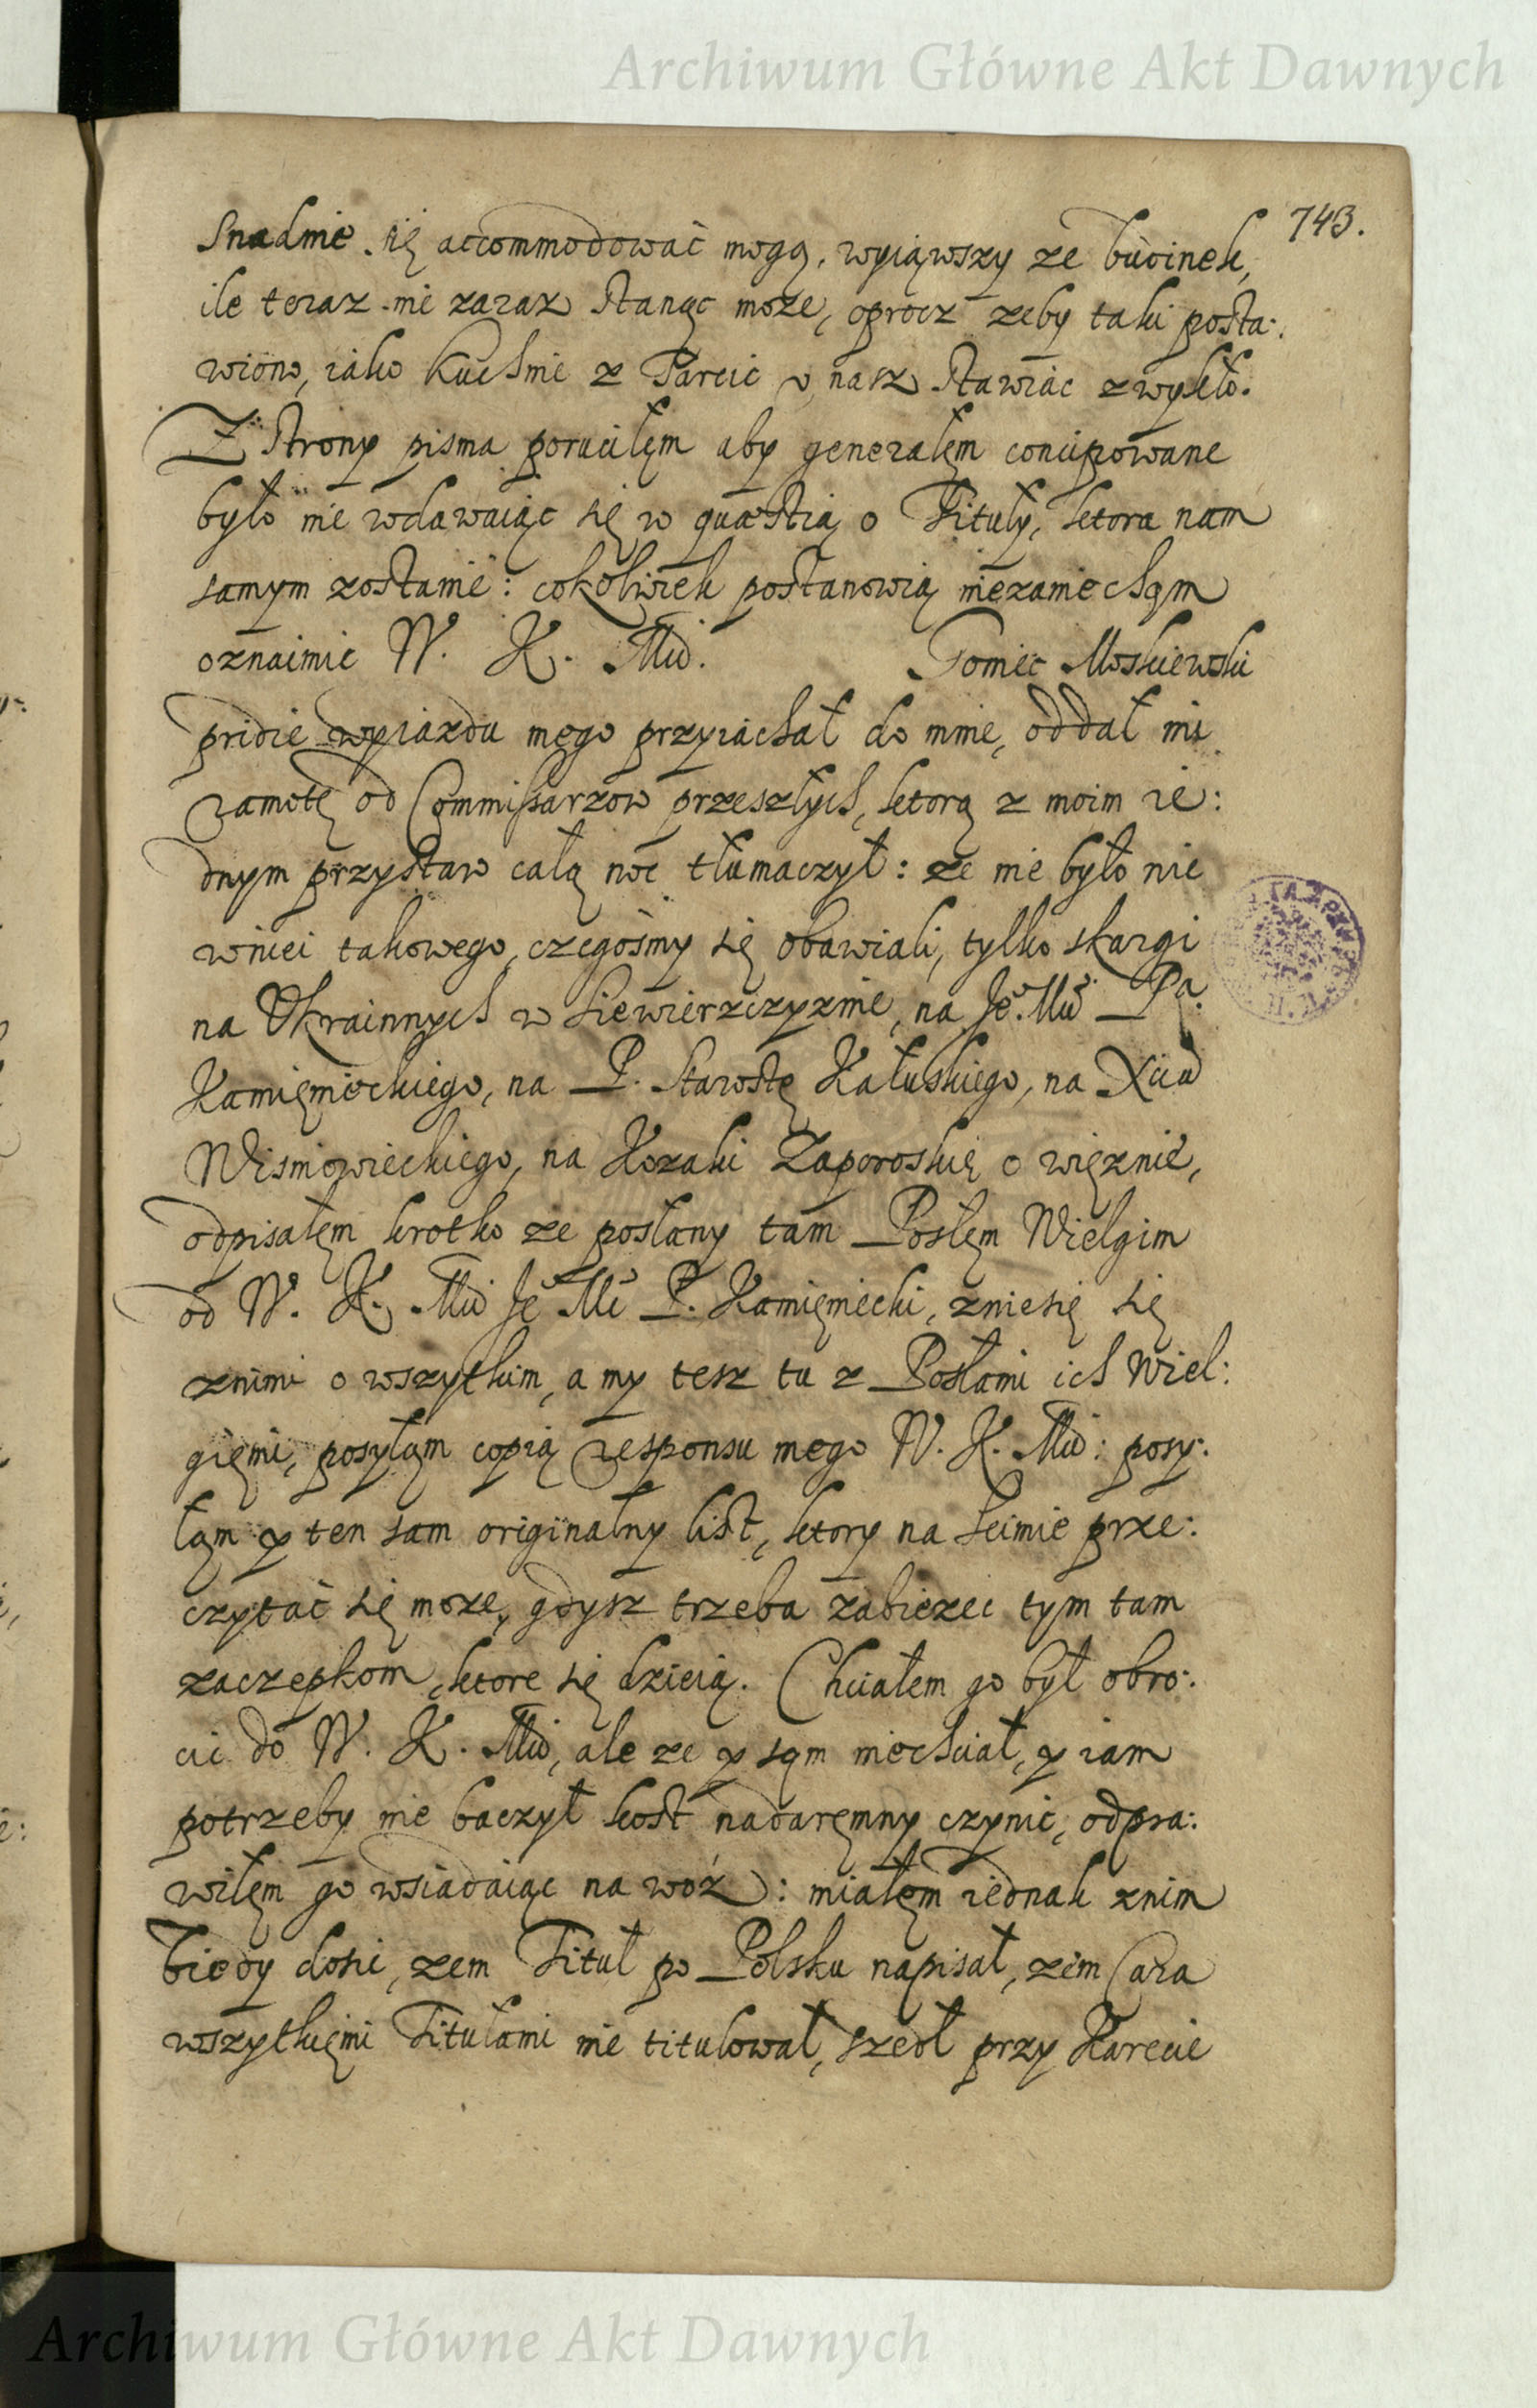 Archiwum Główne Akt Dawnych
743.
Snadnie się accommodować mogą, wyiąwszy ze budinek,
ile teraz nie zaraz stanąc moze, oprocz zeby taki posta:
wiono, iako kuchnie z Tarcic u nasz stawiac zwykło.
Z strony pisma poruciłęm aby generałęm concipowane
było nie wdawaiąc się w quæstią o Tituły, ktora nam
samym zostanie: cokolwiek postanowią niezaniecham
oznaimic W. K. Mci. Goniec Moskiewski
pridie wyiazdu mego przyiachał do mnie, oddał mi
ramotę od Commissarzow przeszłych, ktorą z moim ie:
dnym przystaw całą noc tłumaczył: ze nie było nic
wniei takowego, czegośmy się obawiali, tylko skargi
na Ukrainnych w Siewierzczyznie, na Je. Mci Pa.
Kamięnieckiego, na P. Starostę Kałuskiego, na Xcia
Wisniowieckiego, na Kozaki Zaporoskię o więznie,
odpisałęm krotko ze posłany tam Posłęm Wielgim
od W. K. Mci Je Mc P. Kamięniecki, zniesię się
znimi o wszytkim, a my tesz tu z Posłami ich Wiel:
gięmi, posyłąm copią responsu mego W. K. Mci: posy:
łąm y ten sam originalny list, ktory na seimie prze:
czytać się moze, gdysz trzeba zabiezec tym tam
zaczepkom, ktore się dzieią. Chciałem go był obro:
cic do W. K. Mci, ale ze y sąm niechciał, y iam
potrzeby nie baczył kost nadaręmny czynic, odpra:
wiłęm go wsiadaiąc na woz: miałęm iednak znim
biedy dosic, zem Titul po Polsku napisał, zem Cara
wszytkięmi Titułami nie titulował, szedł przy Karecie
Archiwum Główne Akt Dawnych